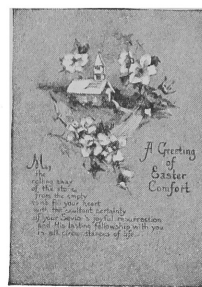 A Greeting
of
Easter
Comfort
May
the
rolling away
of the stone
from the empty
tomb fill your heart
with the exultant certainty
of your Savior's joyful resurrection
and His lasting fellowship with you
in all circumstances of life.